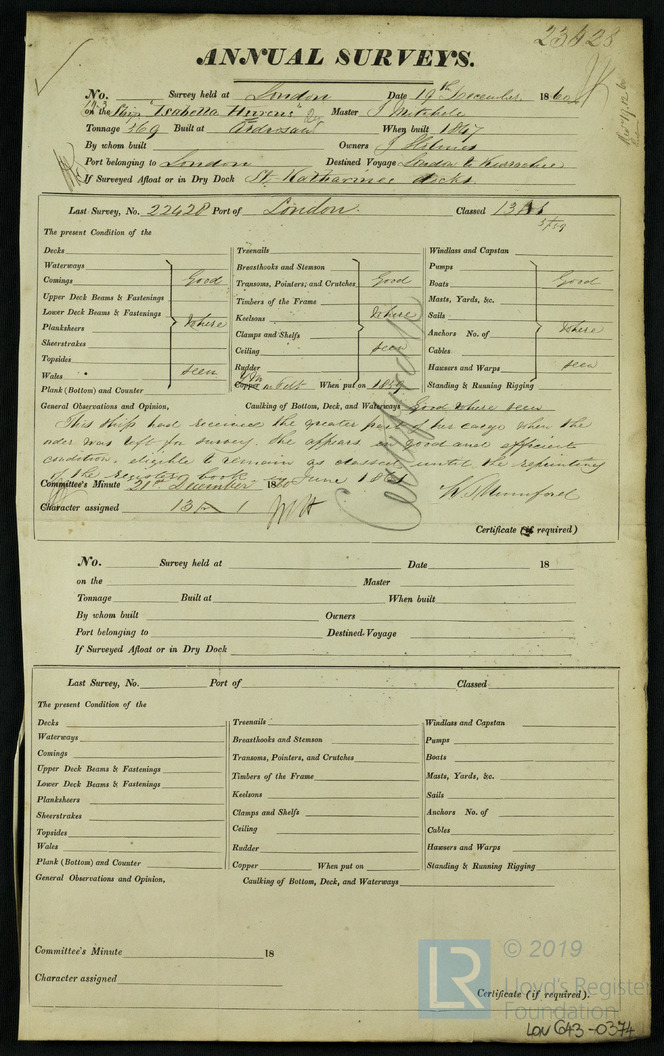 23428
ANNUAL SURVEYS.
No. Survey held at London Date 19th December 1860
on the Ship "Isabella Hercus" Master J Mitchell
Tonnage 369 Built at Ardrossan When built 1847
By whom built Owners
Port belonging to London Destined Voyage London to Kurrachee
If Surveyed Afloat or in Dry Dock St. Katharine docks.
Last Survey, No. 22428 Port of London. Classed 13 A 1
The present Condition of the
Decks
Waterways
Comings
Upper Deck Beams & Fastenings
Lower Deck Beams & Fastenings
Planksheers
Sheerstrakes
Topsides
Wales
Plank (Bottom) and Counter
Good
where
seen
Treenails
Breasthooks and Stemson
Transoms, Pointers, and Crutches
Timbers of the Frame
Keelsons
Clamps and Shelfs
Ceiling
Rudder
Copper on felt When put on 1859
Good
where
seen
Windlass and Capstan
Pumps
Boats
Masts, Yards, &c.
Sails
Anchors No. of
Cables
Hawsers and Warps
Standing & Running Rigging
Good
where
seen
General Observations and Opinion, Caulking of Bottom, Deck, and Waterways Good where seen
This ship had received the greater part of her cargo when the
order was left for survey. She appears in good and efficient
condition. eligible to remain as classed until the reprinting
of the register book in June 1861
Committee's Minute 21st December 1860
Character assigned 13 A 1
Certificate (if required)
No. Survey held at Date 18
on the Master
Tonnage Built at When built
By whom built Owners
Port belonging to Destined Voyage
If Surveyed Afloat or in Dry Dock
Last Survey, No. Port of Classed
The present Condition of the
Decks
Waterways
Comings
Upper Deck Beams & Fastenings
Lower Deck Beams & Fastenings
Planksheers
Sheerstrakes
Topsides
Wales
Plank (Bottom) and Counter
Treenails
Breasthooks and Stemson
Transoms, Pointers, and Crutches
Timbers of the Frame
Keelsons
Clamps and Shelfs
Ceiling
Rudder
Copper When put on
Windlass and Capstan
Pumps
Boats
Masts, Yards, &c.
Sails
Anchors No. of
Cables
Hawsers and Warps
Standing & Running Rigging
General Observations and Opinion, Caulking of Bottom, Deck, and Waterways
Committee's Minute 18
Character assigned
Certificate (if required).
LR © 2019
Lloyd's Register
Foundation
LON 643-0374